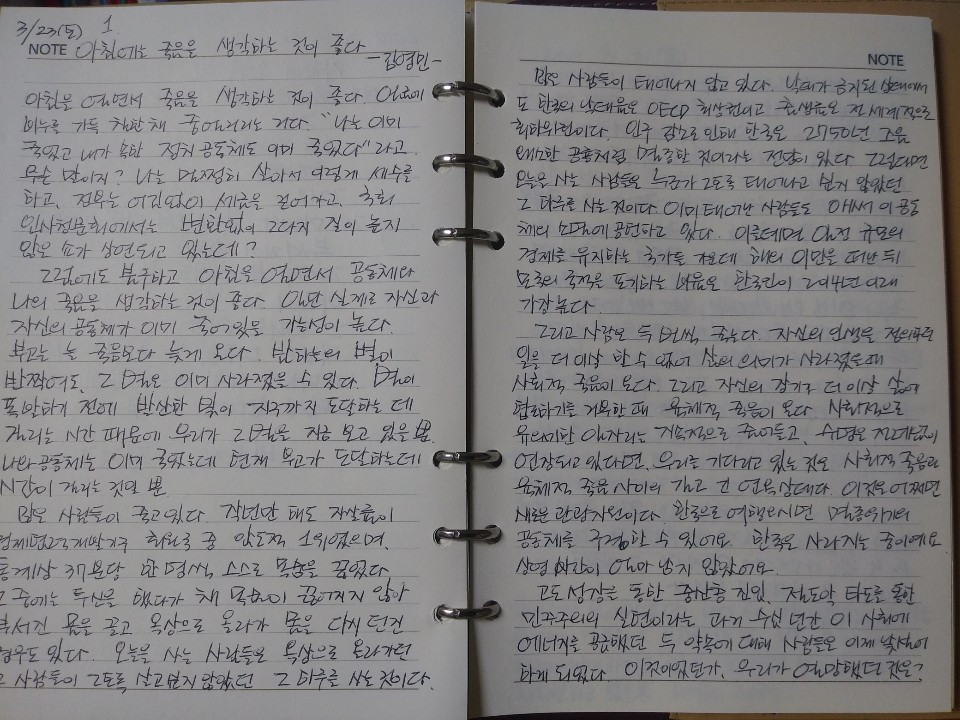 3/23(토) 1
NOTE 아침에는 죽음을 생각하는 것이 좋다
-김영민-
아침을 열면서 죽음을 생각하는 것이 좋다. 얼굴에
비누를 가득 칠한 채 중얼거리는 거다. "나는 이미
죽었고 내가 속한 정치 공동체도 이미 죽었다"라고.
무슨 말이지? 나는 멀쩡히 살아서 이렇게 세수를
하고, 정부는 어김없이 세금을 걷어가고, 국회
인사청문회에서는 변함없이 그다지 질이 높지
않은 쇼가 상연되고 있는데?
그럼에도 불구하고 아침을 열면서 공동체와
나의 죽음을 생각하는 것이 좋다. 왜냐면 실제로 자신과
자신의 공동체가 이미 죽어있을 가능성이 높다.
부고는 늘 죽음보다 늦게 온다. 밤하늘의 별이
반짝여도, 그 별은 이미 사라졌을 수 있다. 별이
폭발하기 전에 발산한 빛이 지구까지 도달하는 데
걸리는 시간 때문에 우리가 그 별을 지금 보고 있을 뿐.
나와 공동체는 이미 죽었는데 현재 부고가 도달하는데
시간이 걸리는 것일 뿐.
많은 사람들이 죽고 있다. 작년만 해도 자살률이
경제협력개발기구 회원국 중 압도적 1위였으며,
통계상 37분당 한 명씩 스스로 목숨을 끊었다.
그 중에는 투신을 했다가 채 목숨이 끊어지지 않아
부서진 몸을 끌고 옥상으로 올라가 몸을 다시 던진
경우도 있다. 오늘을 사는 사람들은 옥상으로 올라가던
그 사람들이 그토록 살고 싶지 않았던 그 하루를 사는 것이다.
NOTE
많은 사람들이 태어나지 않고 있다. 낙태가 금지된 상태에서
도 한국의 낙태율은 OECD 최상위이고 출생률은 전 세계적으로
최하위권이다. 인구 감소로 인해 한국은 2750년 조음
멸종한 공룡처럼 멸종할 것이라는 전망이 있다. 그렇다면
오늘을 사는 사람들은 누군가 그토록 태어나고 싶지 않았던
그 하루를 사는 것이다. 이미 태어난 사람들도 애써 이 공동
체의 소멸에 공헌하고 있다. 이를테면 일정 규모의
경제를 유지하는 국가들 가운데 해외 이민을 떠난 뒤
모국의 국적을 포기하는 비율은 한국인이 2014년 이래
가장 높다.
그리고 사람은 두 번씩 죽는다. 자신의 인생을 정의하던
일을 더 이상 할 수 없어 삶의 의미가 사라졌을 때
사회적 죽음이 온다. 그리고 자신의 장기가 더 이상 삶에
협조하기를 거부할 때 육체적 죽음이 온다. 사회적으로
유의미한 일자리는 지속적으로 줄어들고, 수명은 전례없이
연장되고 있다면, 우리를 기다리고 있는 것은 사회적 죽음과
육체적 죽음 사이의 길고 긴 연옥상태다. 이것은 어쩌면
새로운 관광자원이다. 한국으로 여행오시면 멸종위기의
공동체를 구경할 수 있어요. 한국은 사라지는 중이에요.
상영 시간이 얼마 남지 않았어요.
고도 성장을 통한 중산층 진입, 절도약 타도를 통한
민주주의의 실현이라는 과거 수십 년간 이 사회에
에너지를 공급했던 두 약속에 대해 사람들은 이제 낯설어
하게 되었다. 이것이었던가, 우리가 열망했던 것은?